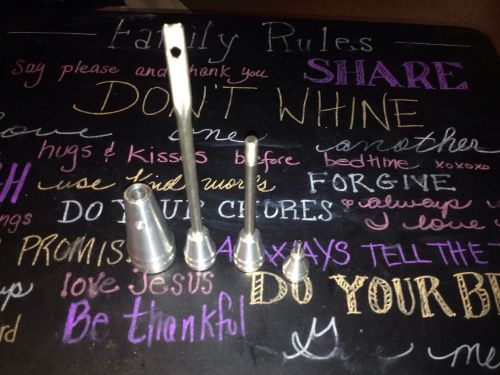 Family Rules
Say please and thank you SHARE
DON'T WHINE
love one another
hugs & kisses before bedtime xoxoxo
use kind words FORGIVE
DO YOUR CHORES always
I love
PROMIS ALWAYS TELL THE
love Jesus DO YOUR BE
Be thankful
Give me